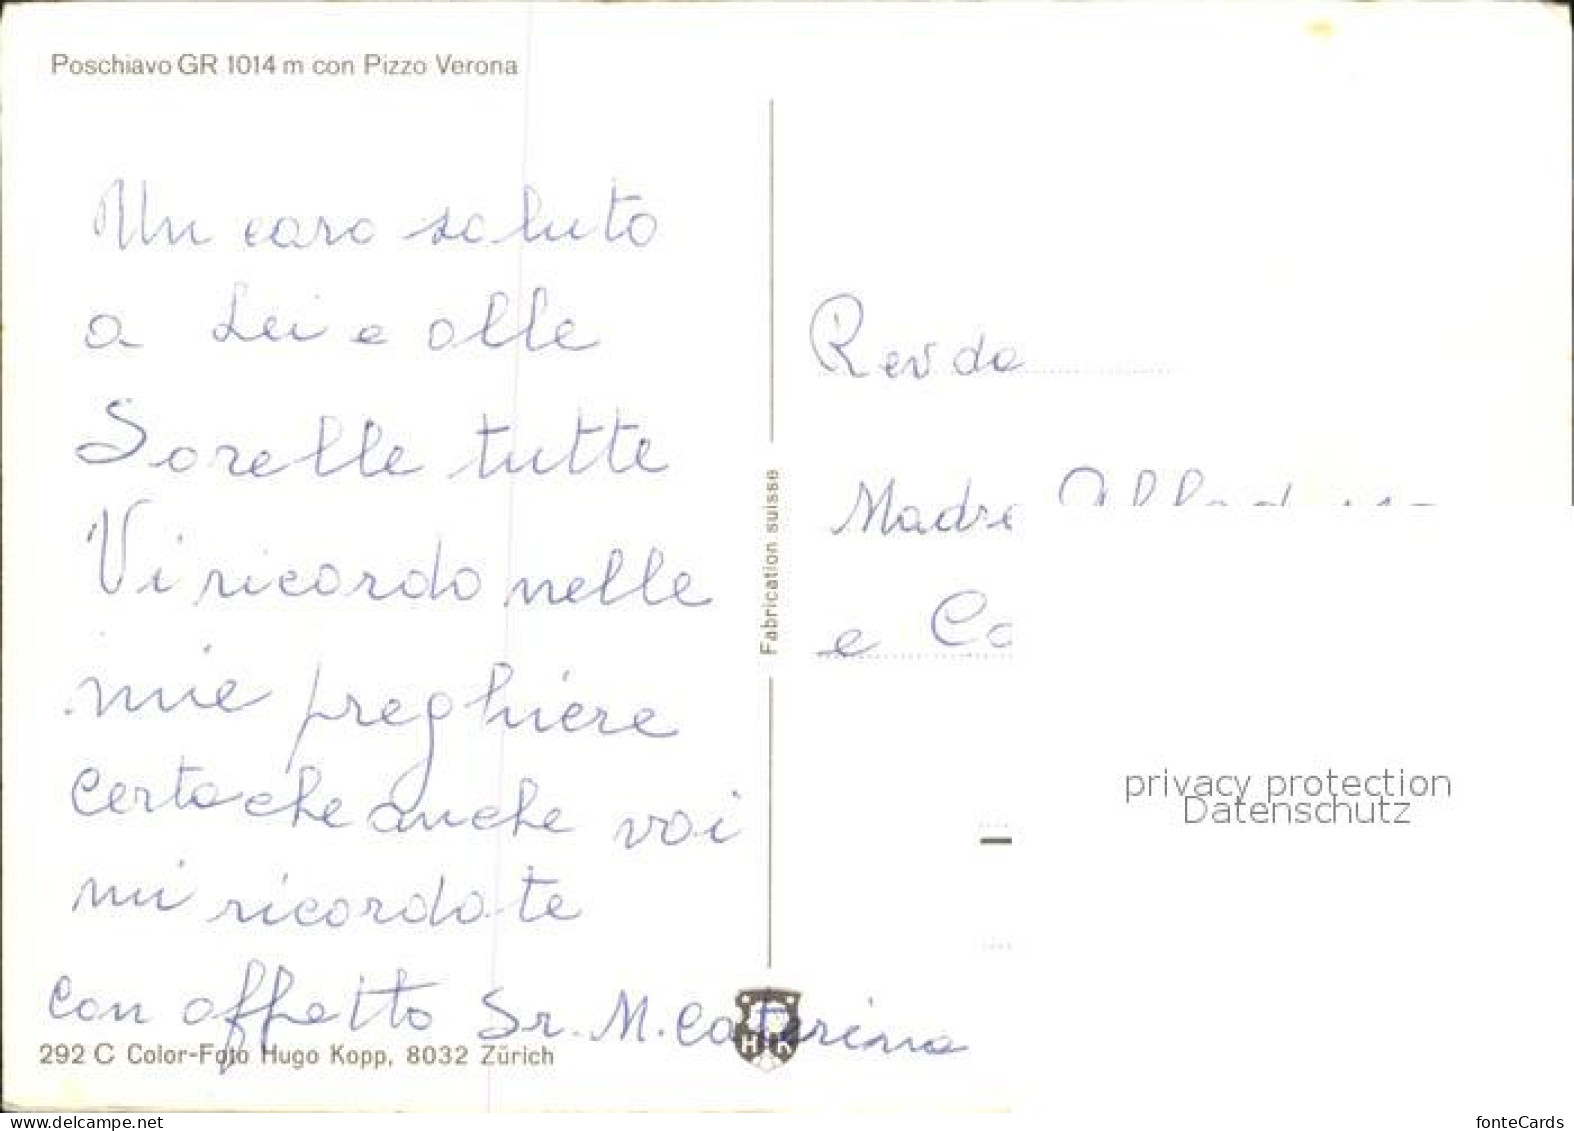 Poschiavo GR 1014 m con Pizzo Verona
Un caro saluto
a Lei e alle
Sorelle tutte
Vi ricordo nelle
mie preghiere
certa che anche voi
mi ricordate
con affetto Sr. M. Caterina
292 C Color-Foto Hugo Kopp, 8032 Zürich
Fabrication suisse
HK
Revda
Madre
e
privacy protection
Datenschutz
www.delcampe.net
fonteCards